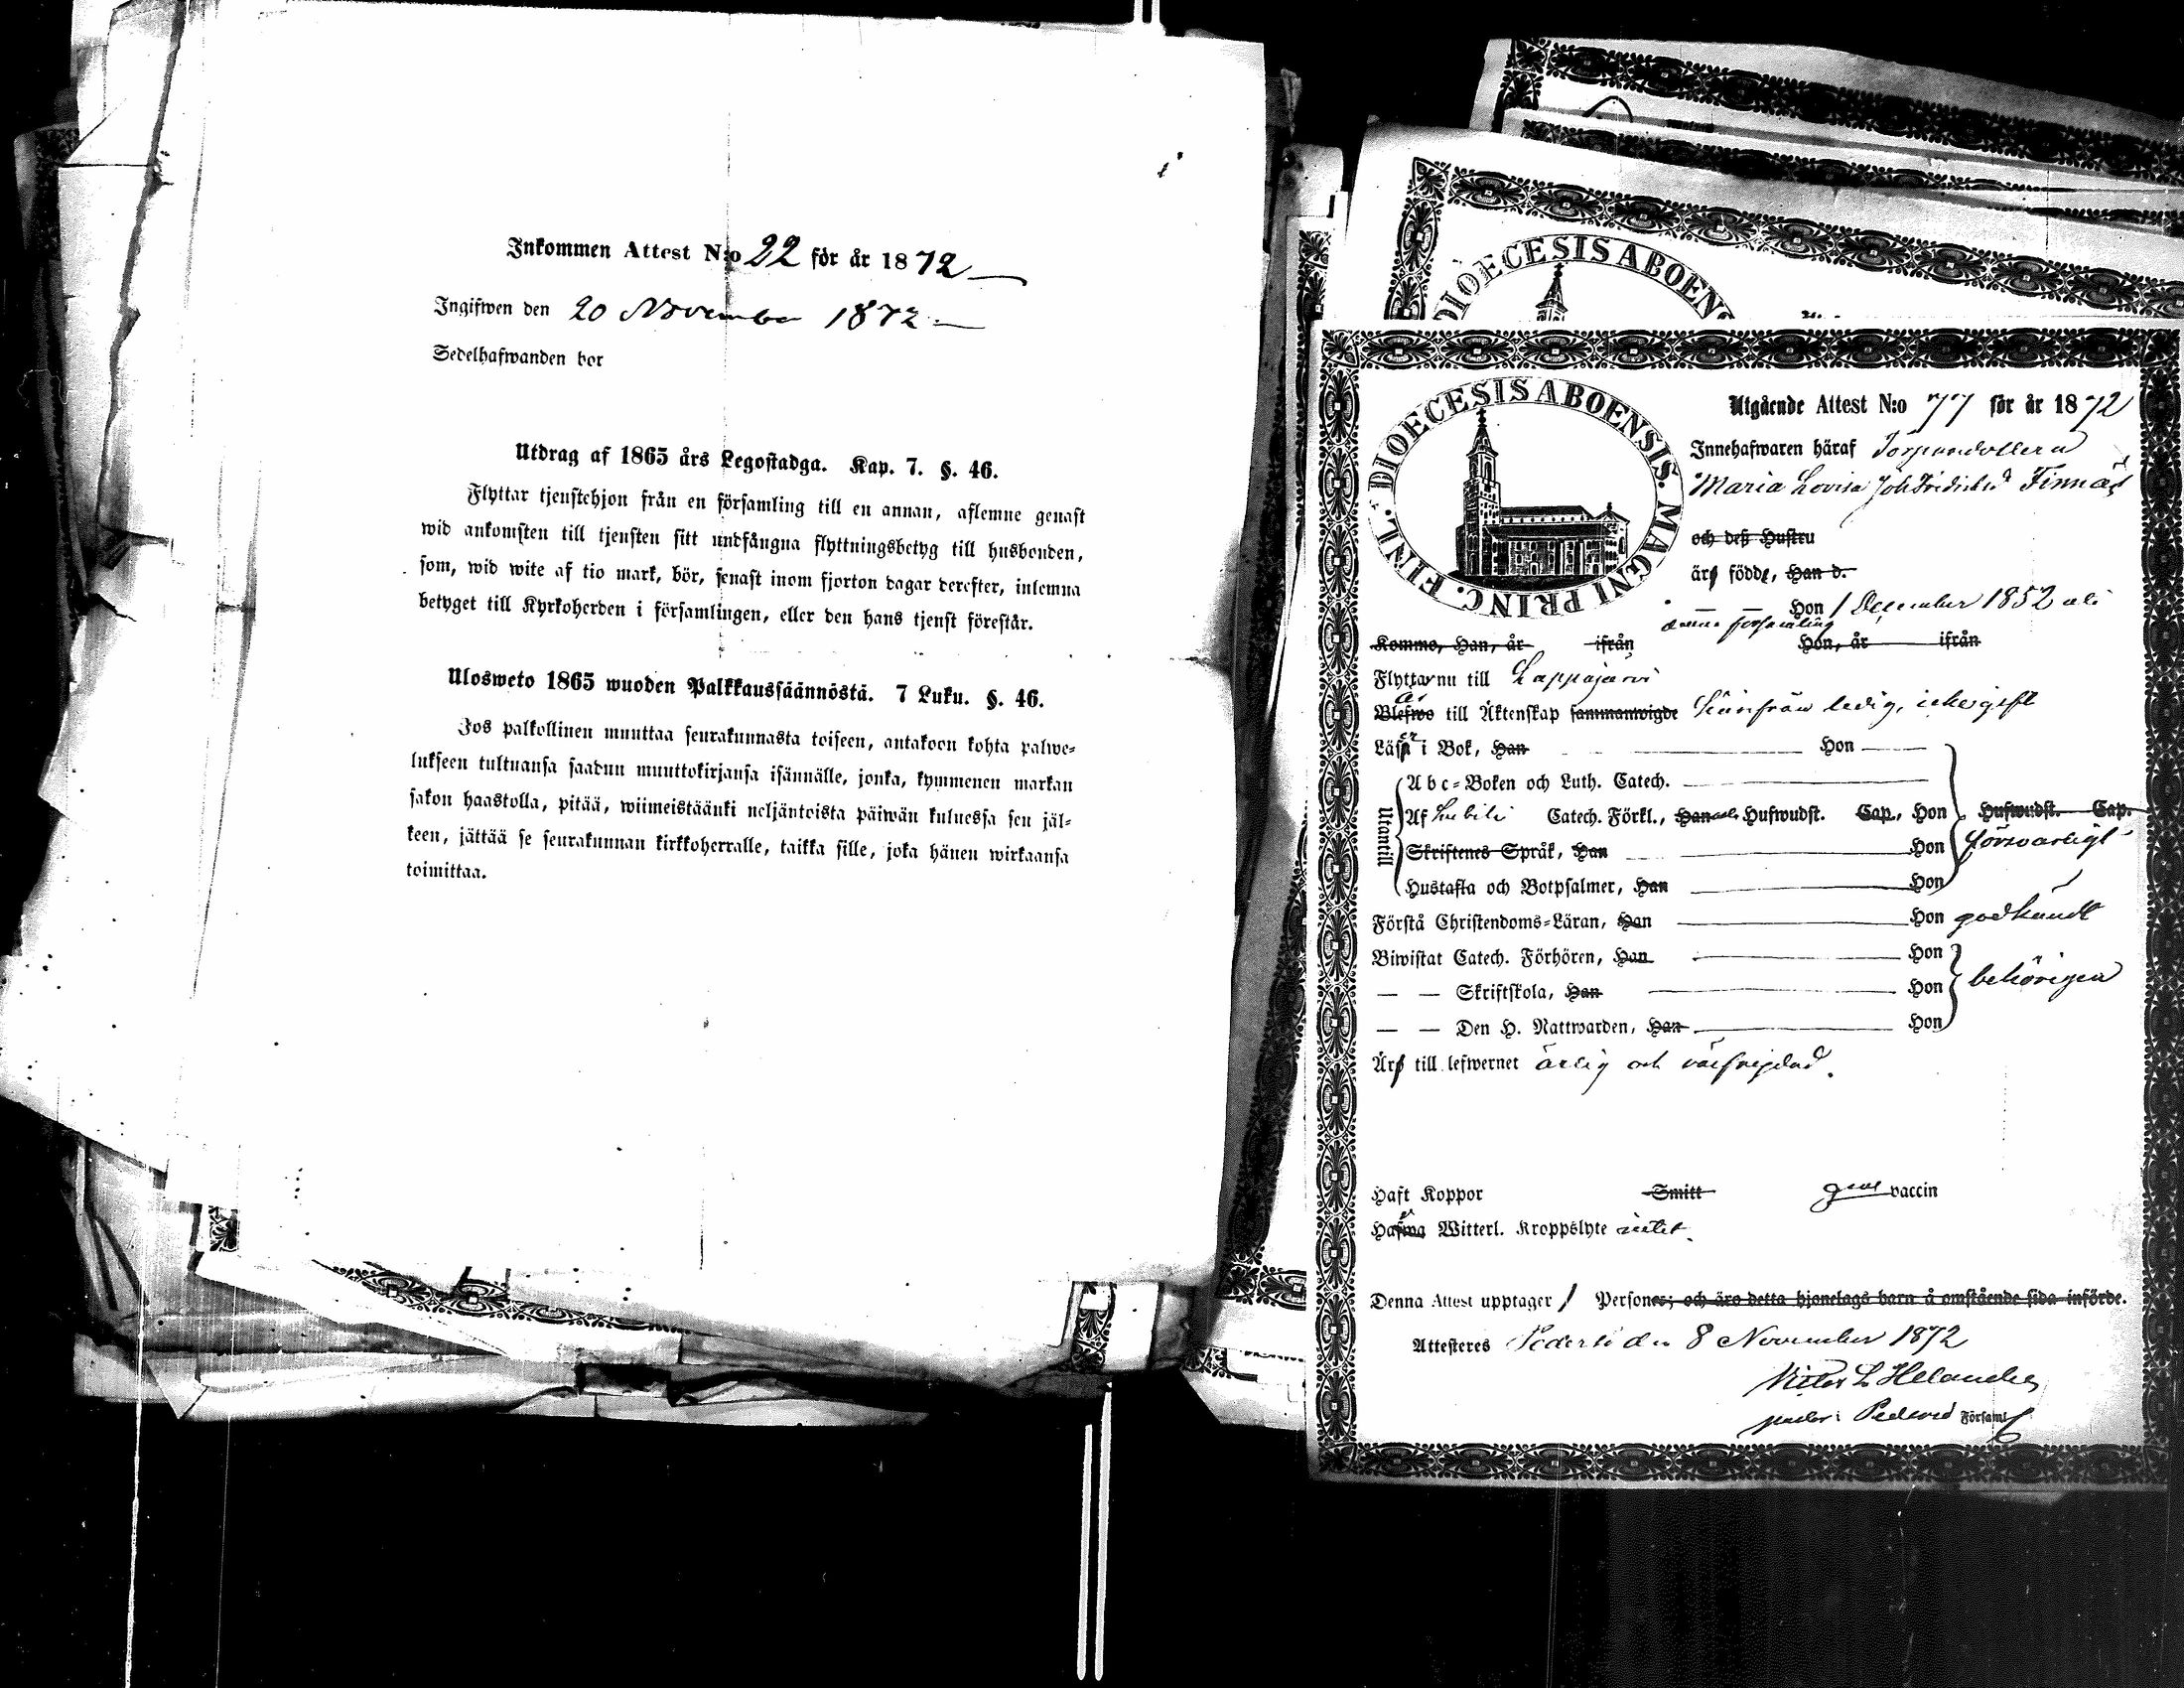 Inkommen Attest N:o 22 för år 1872
Ingifwen den 20 November 1872
Sedelhafwanden bor
Utdrag af 1865 års Legostadga. Kap. 7. §. 46.
Flyttar tjenstehjon från en församling till en annan, aflemne genast
wid ankomsten till tjensten sitt undfångna flyttningsbetyg till husbonden,
som, wid wite af tio mark, bör, senast inom fjorton dagar derefter, inlemna
betyget till Kyrkoherden i församlingen, eller den hans tjenst förestår.
Ulosweto 1865 wuoden Palkkaussäännöstä. 7 Luku. §. 46.
Jos palkollinen muuttaa seurakunnasta toiseen, antakoon kohta palwe-
lukseen tultuansa saadun muuttokirjansa isännälle, jonka, kymmenen markan
sakon haastolla, pitää, wiimeistäänki neljäntoista päiwän kuluessa sen jäl-
keen, jättää se seurakunnan kirkkoherralle, taikka sille, joka hänen wirkaansa
toimittaa.
DIOECESIS ABOEN
DIOECESIS ABOENSIS. MAGNI PRINC. FINL.
Utgående Attest N:o 77 för år 1872
Innehafwaren häraf
Maria Lovisa Joh Fredriksd Finnäs
och deß Hustru
äro födde, Han d.
Hon 1 December 1852 uti
denna församling
Kommo, Han, år ifrån Hon, år ifrån
Flyttar nu till Lappajärvi
är
Blefwo till Äktenskap sammanwigde ledig, icke gift
Läsa i Bok, Han Hon
Abc-Boken och Luth. Catech.
Utantill
Af Catech. Förkl., Han Hufwudst. Cap., Hon Hufwudst. Cap.
försvarligt
Skriftenes Språk, Han Hon
Hustafla och Botpsalmer, Han Hon
Förstå Christendoms-Läran, Han Hon godkändt
Biwistat Catech. Förhören, Han Hon
behörigen
— — Skriftskola, Han Hon
— — Den H. Nattwarden, Han Hon
Äro till lefwernet ärlig och välfrejdad.
Haft Koppor Smitt vaccin
Hafwa Witterl. Kroppslyte intet.
Denna Attest upptager 1 Personer; och äro detta hjonelags barn å omstående sida införde.
Attesteres den 8 November 1872
Victor L Helander
pastor i Pedersö Församl